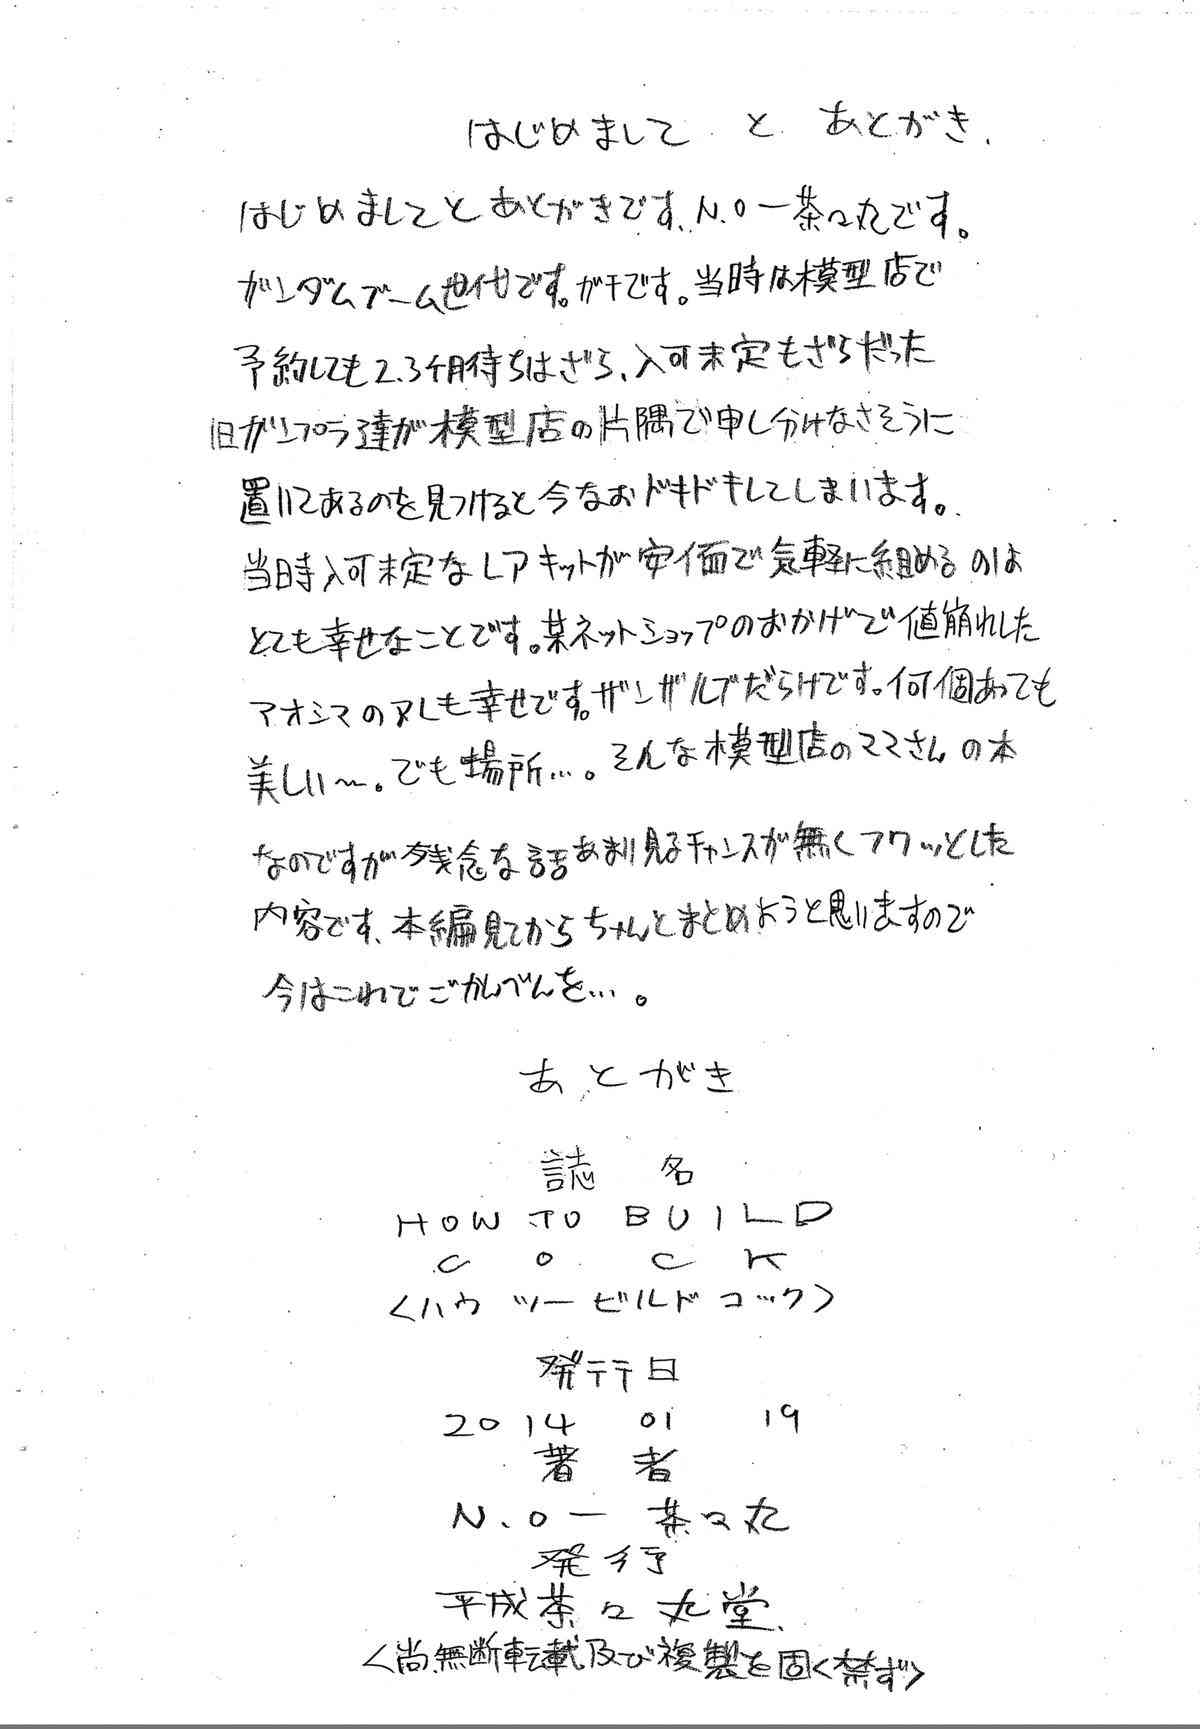 はじめまして と あとがき.
はじめましてとあとがきです、N.O－茶々丸です。
ガンダムブーム世代です。ガチです。当時は模型店で
予約しても2.3ヶ月待ちはざら、入可未定もざらだった
旧ガンプラ達が模型店の片隅で申し分けなさそうに
置いてあるのを見つけると今なおドキドキしてしまいます。
当時入可未定なレアキットが安価で気軽に組めるのは
とても幸せなことです。某ネットショップのおかげで値崩れした
アオシマのアレも幸せです。ザンザルブだらけです。何個あっても
美しい～。でも場所…。そんな模型店のママさんの本
なのですが残念な話あまり見るチャンスが無くフワッとした
内容です、本編見てからちゃんとまとめようと思いますので
今はこれでごかんべんを…。
あとがき
誌名
HOW TO BUILD
COCK
<ハウ ツー ビルド コック>
発行日
2014 01 19
著者
N.O－茶々丸
発行
平成茶々丸堂.
<尚、無断転載及び複製を固く禁ず>